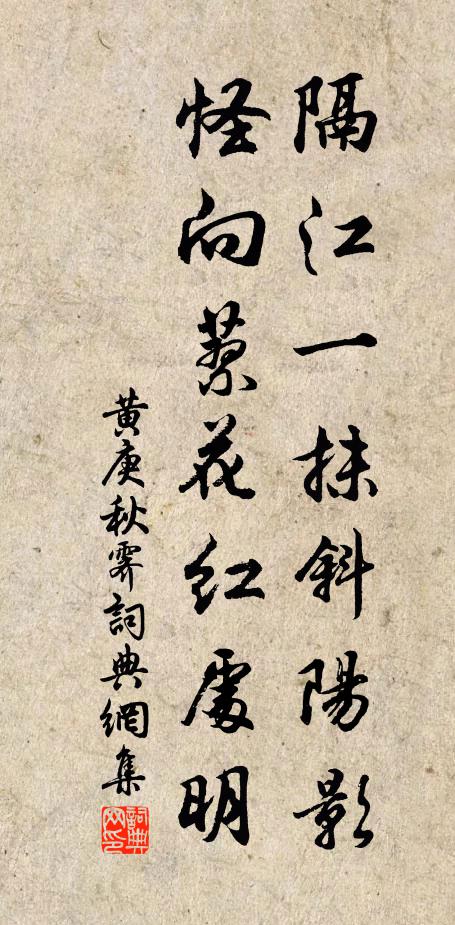 隔江一抹斜陽影
怪向蓼花紅處明
黄庚秋霽詞典網集
詞典網印